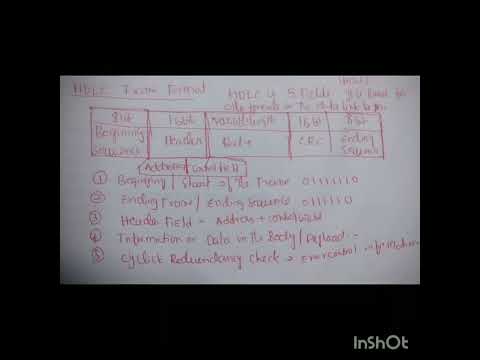 HDLC Fram Format
HDLC 5 Fields
8 bit 16 bit variable length 16 bit 8 bit
Beginning Sequence Header Data CRC Ending Sequence
Address control field
① Beginning / Start of the Frame 01111110
② Ending Frame / Ending Sequence 01111110
③ Header Field = Address + control field
④ Information or Data in the Body / Payload
⑤ cyclick Redundancy check → Error control
InShOt